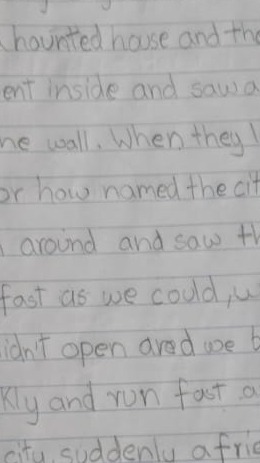 haunted house and the
ent inside and saw a
he wall. When they l
or how named the cit
around and saw th
fast as we could, w
idn't open ared we b
kly and run fast a
city, suddenly a frie